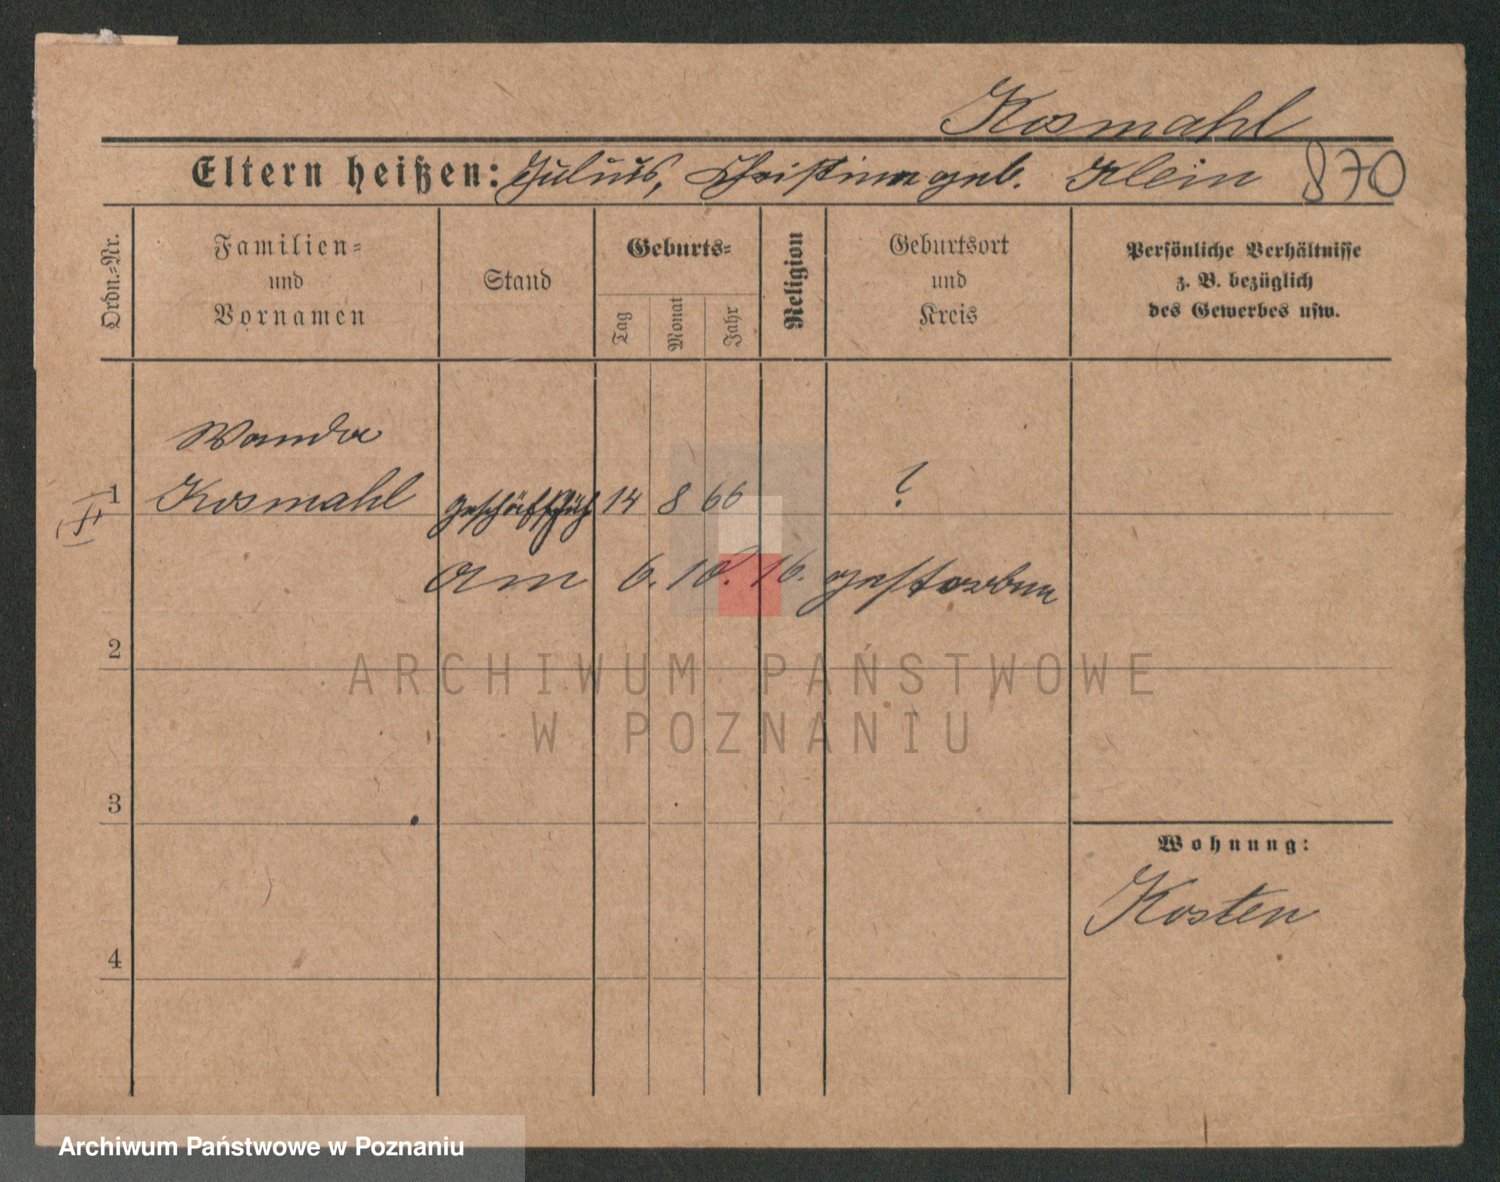 Kosmahl
Eltern heißen: Julius, Christine geb. Klein 870
Ordn.-Nr.
Familien-
und
Vornamen
Stand
Geburts-
Tag
Monat
Jahr
Religion
Geburtsort
und
Kreis
Persönliche Verhältnisse
z. B. bezüglich
des Gewerbes usw.
Wanda
1 Kosmahl Geschäftsfüh. 14 8 66 ?
am 6. 10. 16. gestorben
2
3
4
Wohnung:
Kosten
ARCHIWUM PAŃSTWOWE
W POZNANIU
Archiwum Państwowe w Poznaniu